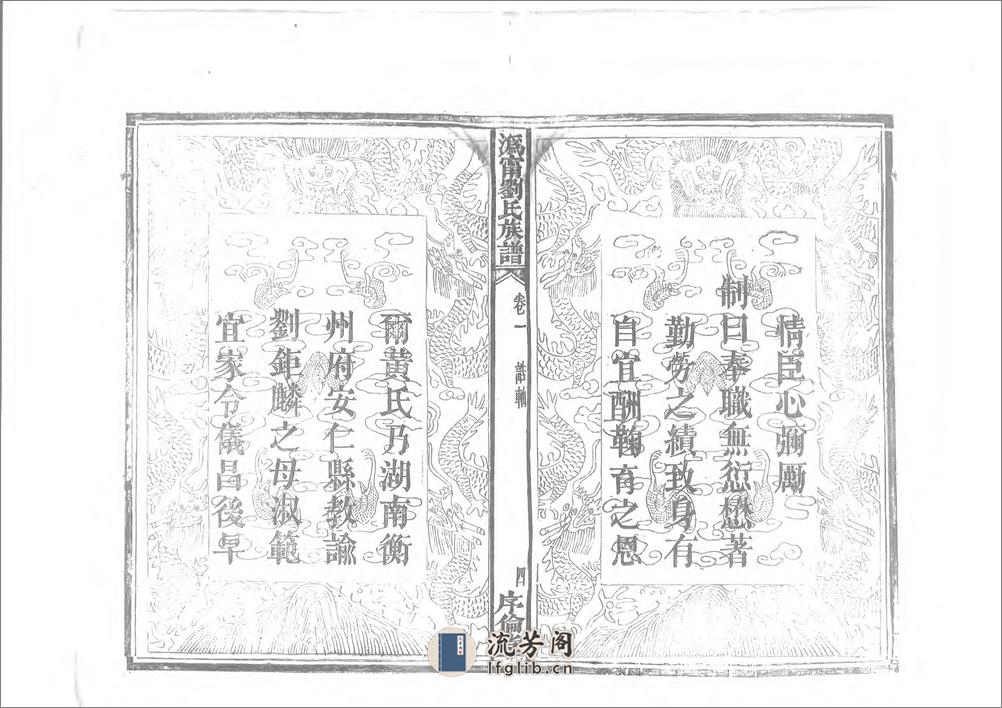 情臣心彌勵
制曰奉職無愆懋著
勤勞之績致身有
自宜酬鞠育之恩
溈甯劉氏族譜
卷一
誥軸
四
序倫
爾黃氏乃湖南衡
州府安仁縣教諭
劉鉅麟之母淑範
宜家令儀昌後早
流芳阁
lfglib.cn